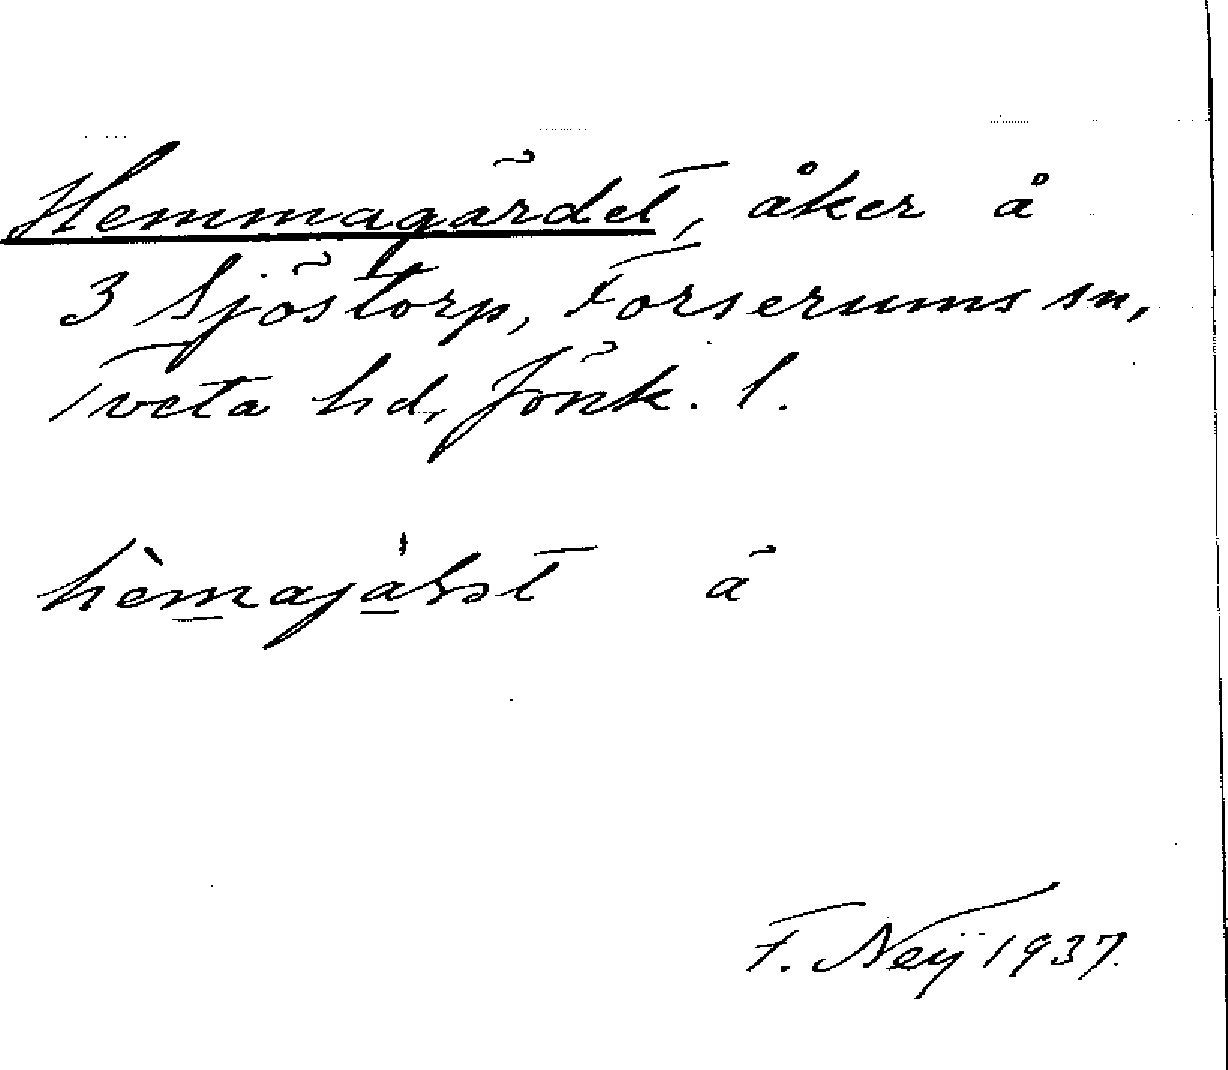 Hemmagärdet, åker å
3 Sjöstorp, Forserums sn,
Tveta hd, Jönk. l.
F. Neij 1937.